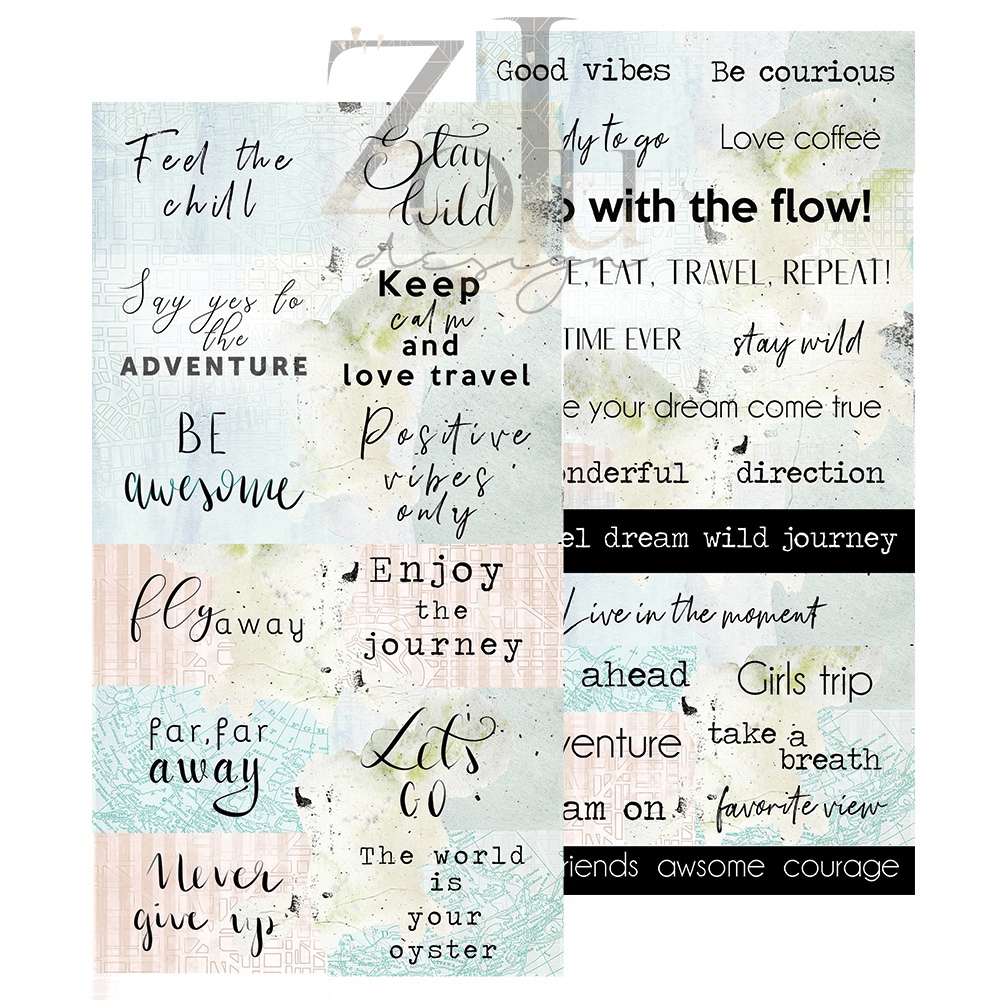 Zolu
design
Feel the
chill
Stay
Wild
Say yes to
the
ADVENTURE
Keep
calm
and
love travel
BE
awesome
Positive
vibes
only
fly away
Enjoy
the
journey
far, far
away
Let's
GO
Never
give up
The world
is
your
oyster
Good vibes
Be courious
dy to go
Love coffee
with the flow!
E, EAT, TRAVEL, REPEAT!
TIME EVER
stay wild
e your dream come true
onderful
direction
el dream wild journey
Live in the moment
ahead
Girls trip
venture
take a
breath
am on
favorite view
riends awsome courage